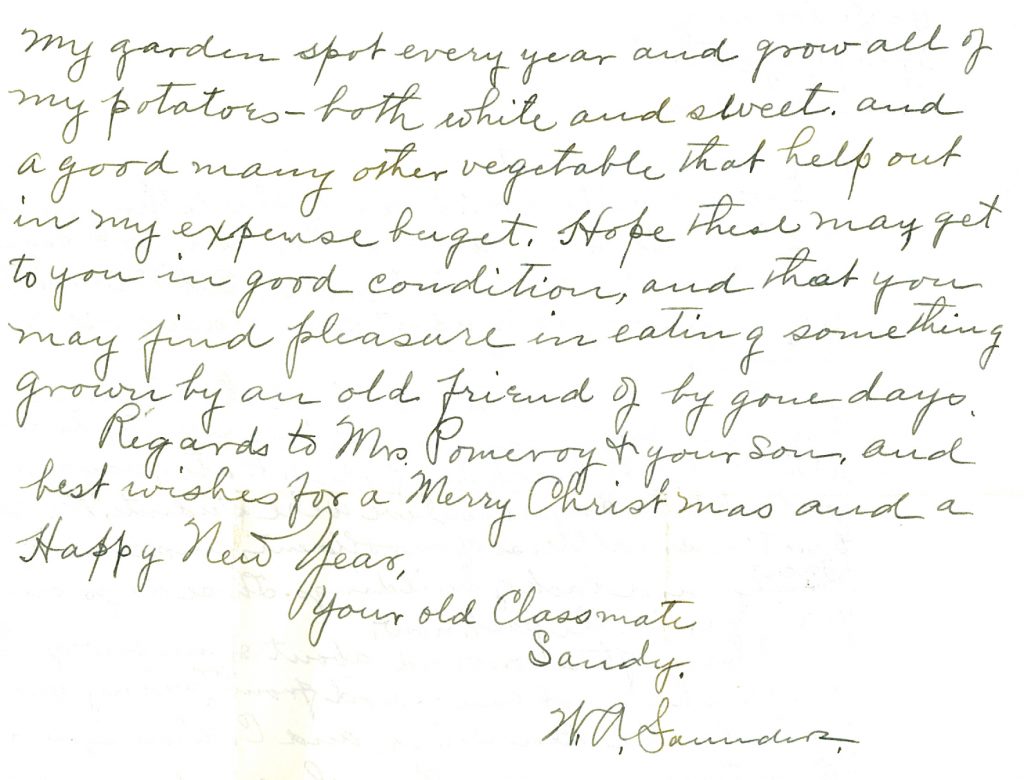 my garden spot every year and grow all of
my potatoes - both white and sweet. and
a good many other vegetable that help out
in my expense buget. Hope these may get
to you in good condition, and that you
may find pleasure in eating something
grown by an old friend of by gone days.
Regards to Mrs. Pomeroy & your son, and
best wishes for a Merry Christmas and a
Happy New Year,
Your old Classmate
Sandy.
W. A. Saunders.